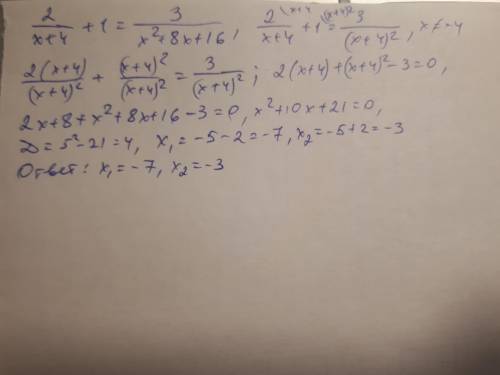 2/(x+4) + 1 = 3/(x²+8x+16), 2\ˣ⁺⁴/(x+4) + 1\⁽ˣ⁺⁴⁾² = 3/(x+4)², x≠-4
2(x+4)/(x+4)² + (x+4)²/(x+4)² = 3/(x+4)²; 2(x+4)+(x+4)²-3=0,
2x+8+x²+8x+16-3=0, x²+10x+21=0,
D=5²-21=4, x₁=-5-2=-7, x₂=-5+2=-3
Ответ: x₁=-7, x₂=-3